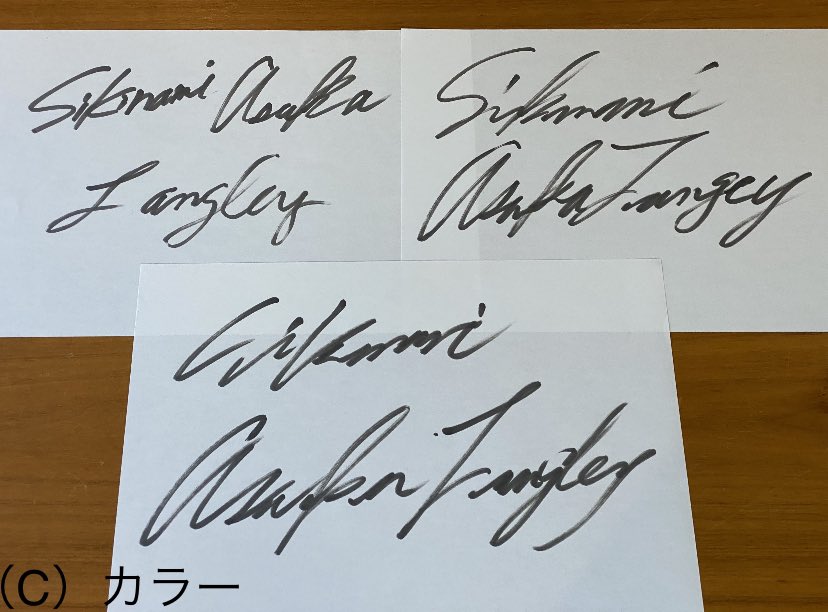 Sikinami Asuka
Langley
Sikinami
Asuka Langey
Sikinami
Asuka Langley
(C) カラー